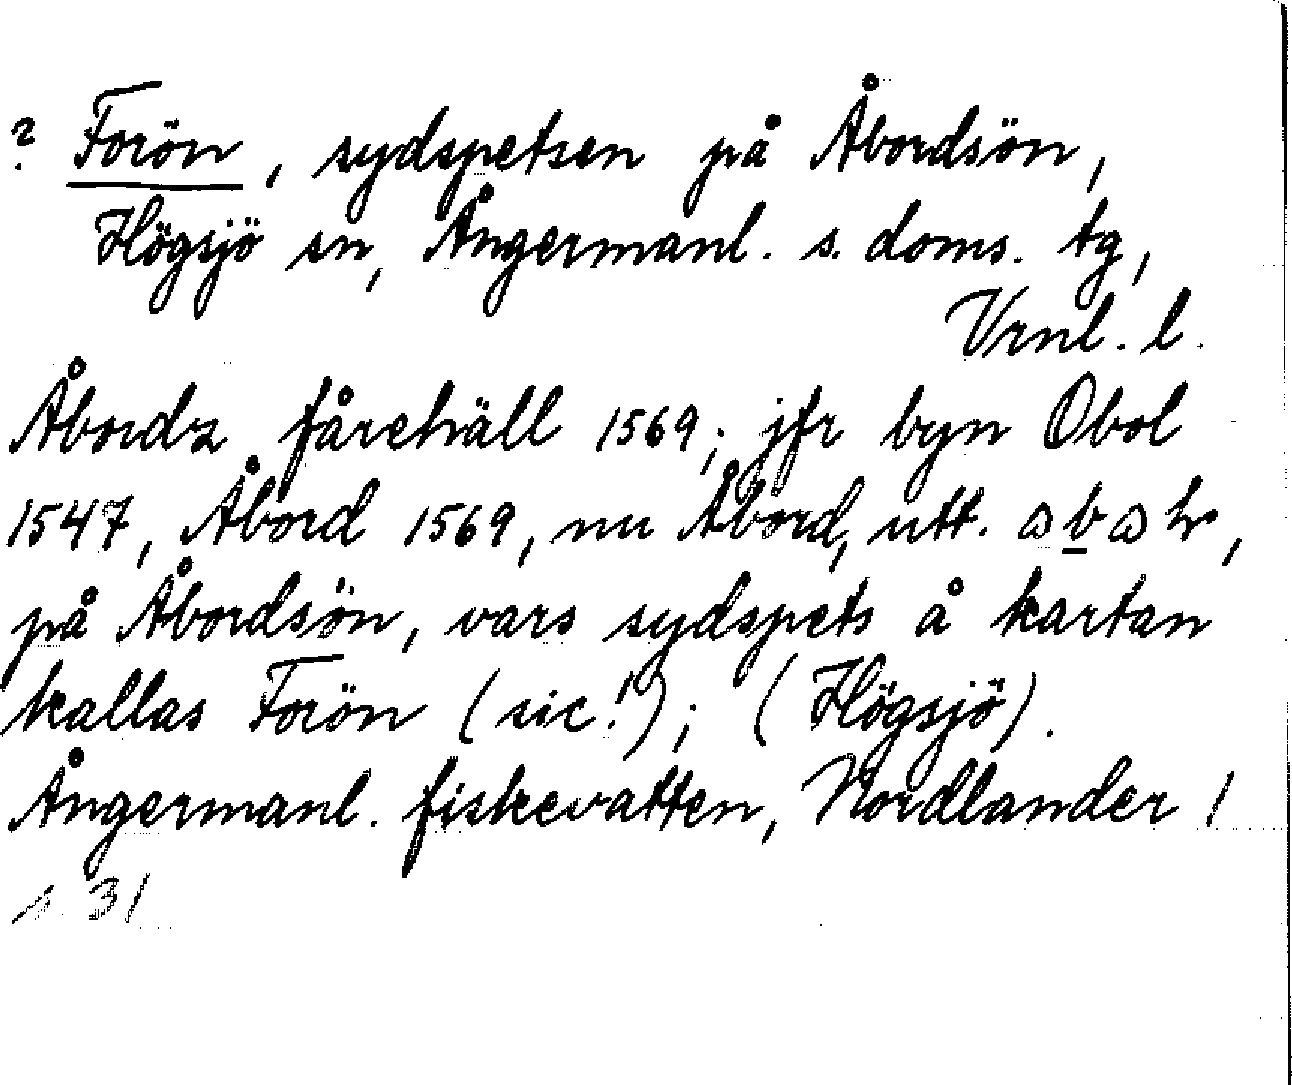 ? Forön, sydspetsen på Åbordsön,
Högsjö sn, Ångermanl. s. doms. tg,
Vrnl. l.
Åbordz fårehäll 1569; jfr byn Obol
1547, Åbord 1569, nu Åbord, utt.
på Åbordsön, vars sydspets å kartan
kallas Forön (sic!); (Högsjö).
Ångermanl. fiskevatten, Nordlander 1
s. 31